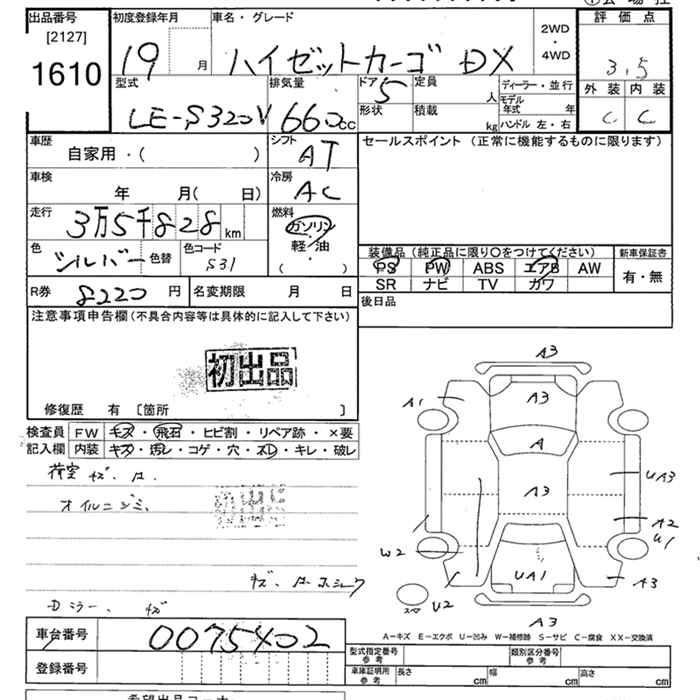 出品番号
[2127]
1610
初度登録年月
19 月
車名・グレード
ハイゼットカーゴ DX
2WD
・
4WD
評価点
3.5
外装 内装
C C
型式
LE-S320V
排気量
660cc
ドア 5
形状
定員 人
積載 kg
ディーラー・並行
モデル年式 年
ハンドル 左・右
車歴
自家用・( )
シフト
AT
セールスポイント (正常に機能するものに限ります)
車検
年 月( 日)
冷房
AC
走行
3万5千828km
燃料
ガソリン
軽・油
( )
色
シルバー
色替
色コード
S31
装備品 (純正品に限り○をつけてください)
新車保証書
PS PW ABS エアB AW
有・無
SR ナビ TV カワ
R券 8220 円
名変期限 月 日
後日品
注意事項申告欄 (不具合内容等は具体的に記入して下さい)
初出品
修復歴 有 [箇所 ]
検査員 FW キズ・飛石・ヒビ割・リペア跡・×要
記入欄 内装 キズ・汚レ・コゲ・穴・スレ・キレ・破レ
荷室 キズ.
オイルニジミ.
初出品
ミラー. キズ
A3
A1
A3
A
A3
UA3
A2
U1
W2
UA1
A3
U2
A3
A-キズ E-エクボ U-凹み W-補修跡 S-サビ C-腐食 XX-交換済
車台番号 0075402
型式指定番号
参考
類別区分番号
参考
登録番号
車庫証明用
参考
長さ cm
幅 cm
高さ cm